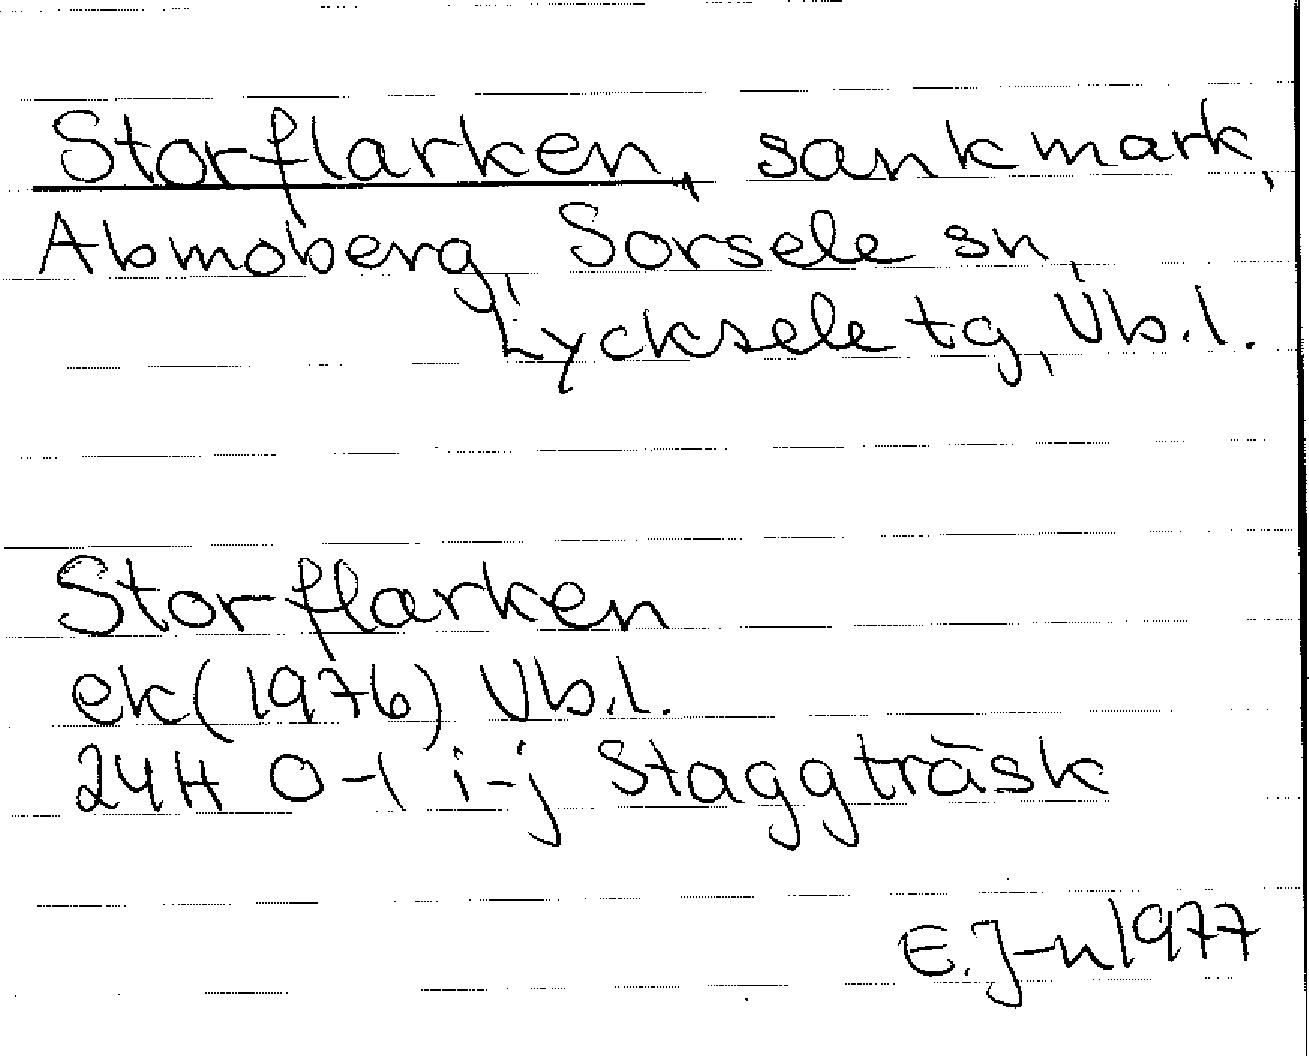 Storflarken, sankmark,
Abmoberg, Sorsele sn,
Lycksele tg, Vb.l.
Storflarken
ek (1976) Vb.l.
24H 0-1 i-j Staggträsk
E. J-n 1977